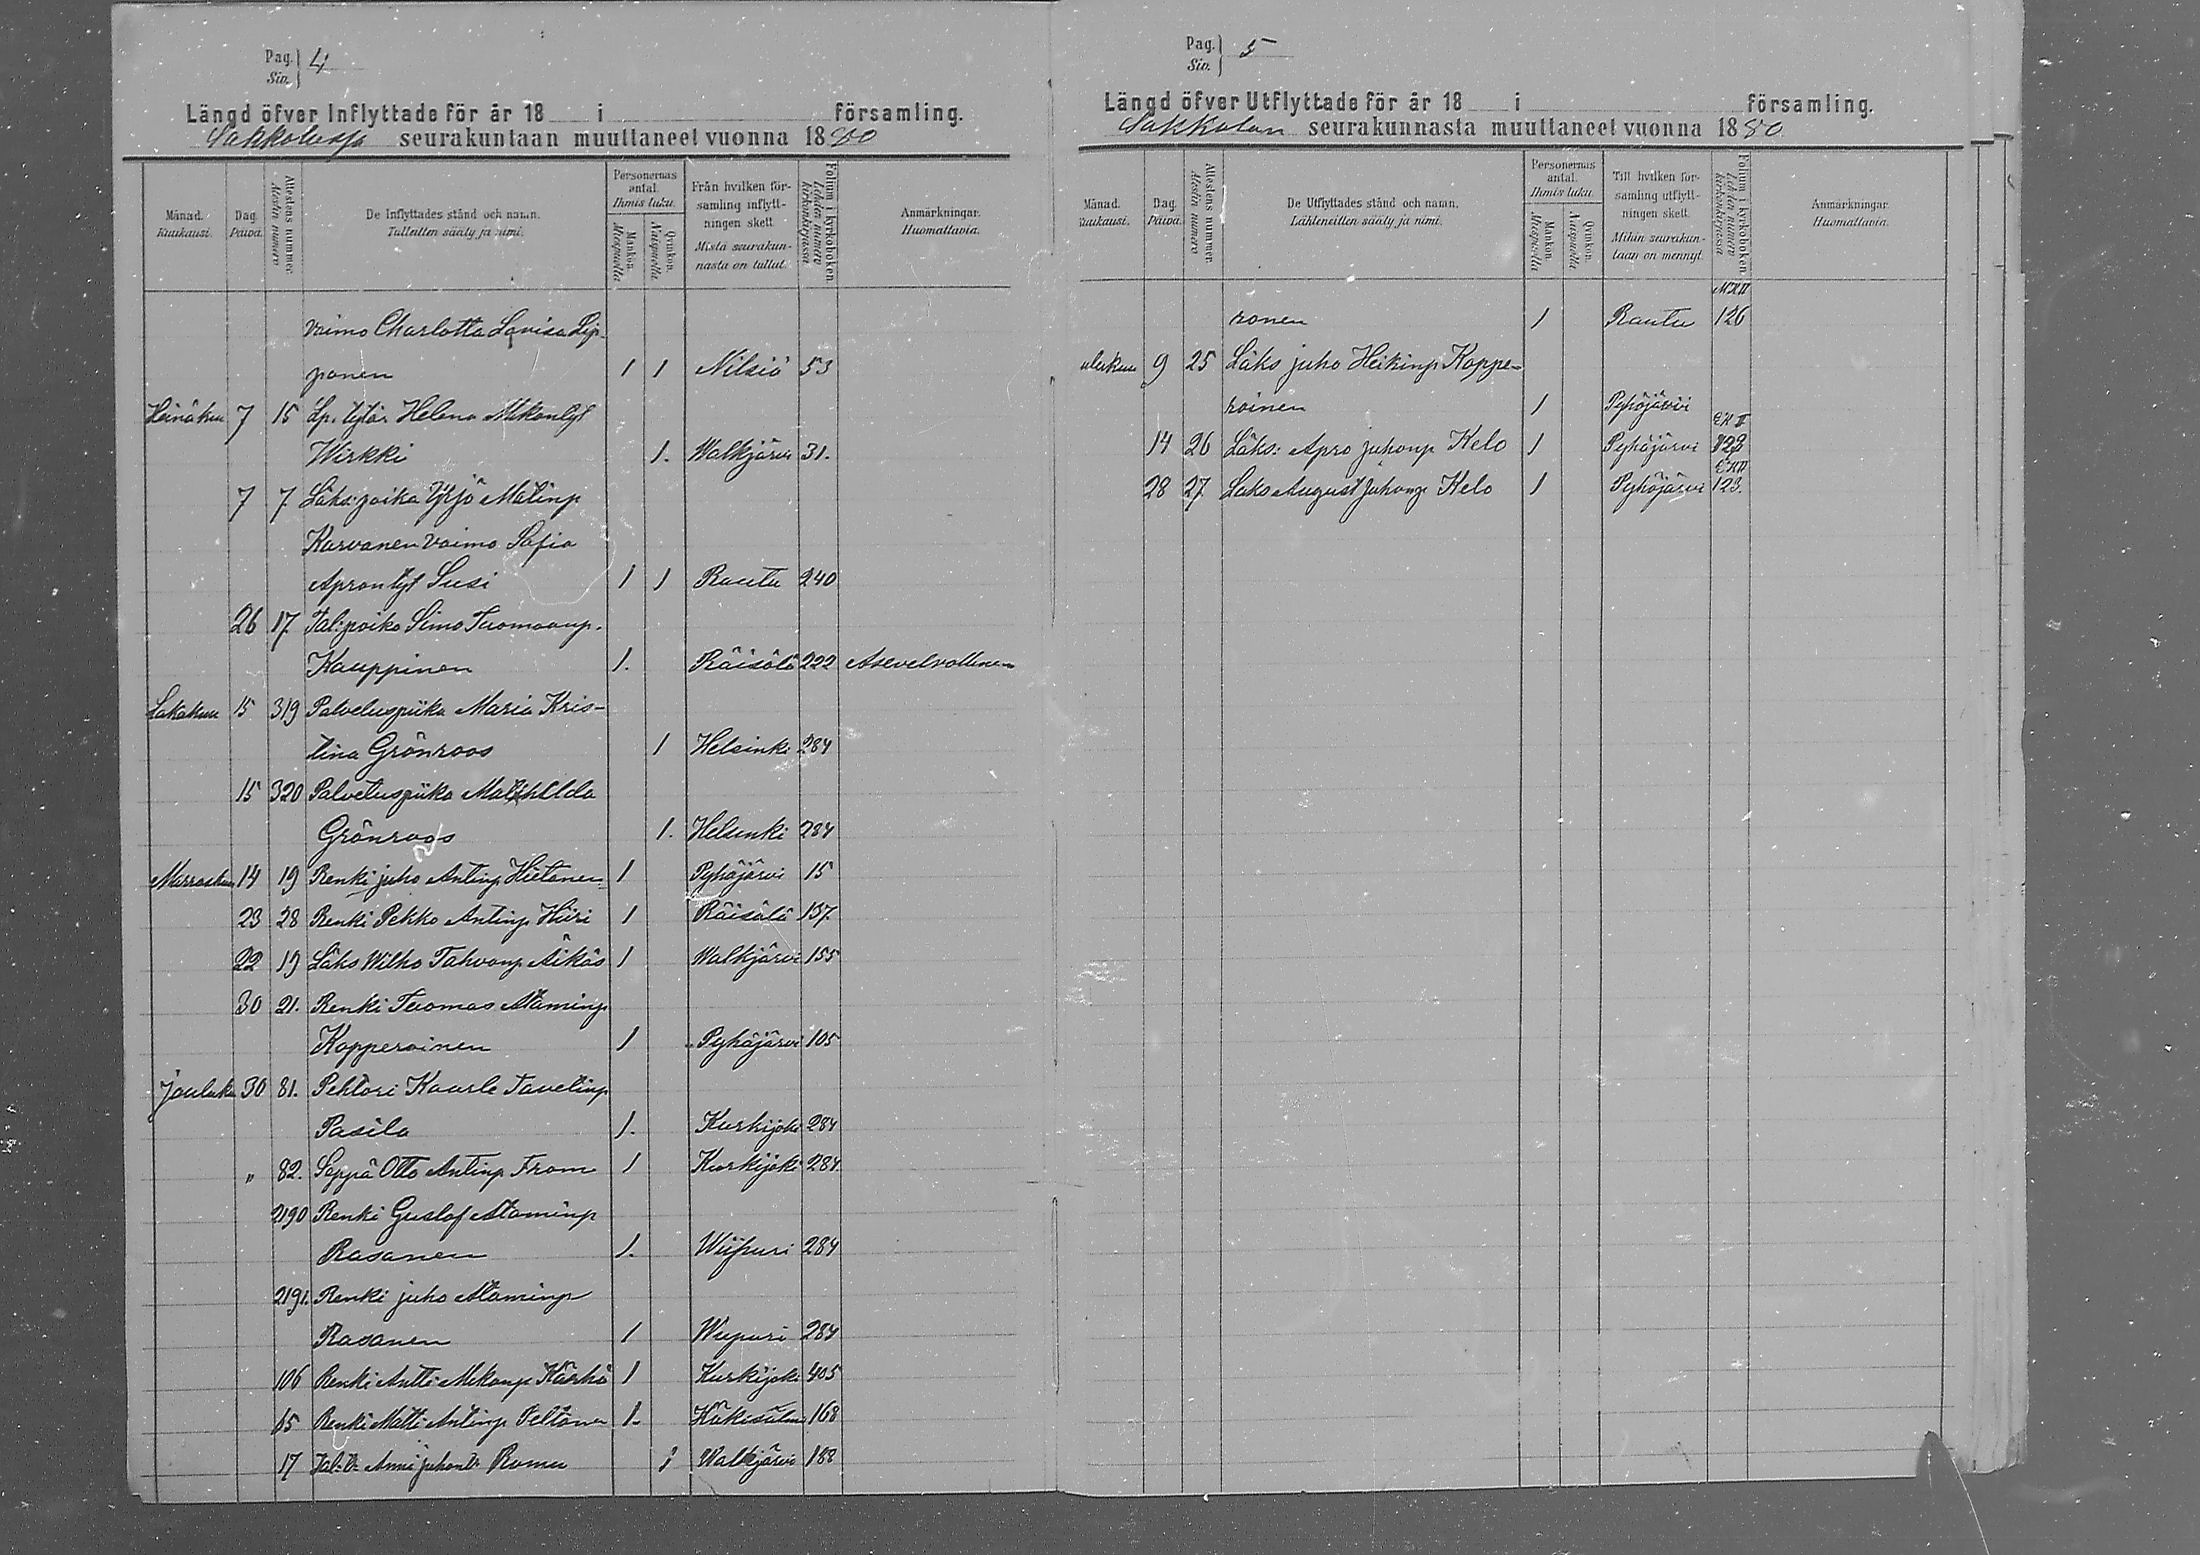 Pag. Siv. 4
Längd öfver Inflyttade för år 18 i församling.
seurakuntaan muuttaneet vuonna 1880
Månad. Kuukausi.
Dag. Päivä.
Attestens nummer. Alestin numero
De Inflyttades stånd och namn. Tulleitten sääty ja nimi.
Personernas antal. Ihmis luku.
Mankön. Miespuolta
Qvinkön. Naispuolta
Från hvilken församling inflyttningen skett. Mistä seurakunnasta on tullut.
Folium i kyrkoboken Lehden numero kirkonkirjassa
Anmärkningar. Huomattavia.
vaimo Charlotta Lovisa Lip-
ponen 1 1 Nilsiö 53
Heinäkuu 7 15 Lp. tytär Helena Mikontyt
Wirkki 1. Walkjärvi 31.
7 7. Läks: poika Yrjö Matinp
Karvanen vaimo Sofia
Aprontyt Susi 1 1 Rautu 240
26 17. Tal: poika Simo Tuomaanp.
Kauppinen 1. Räisälä 222 Asevelvollinen
Lokakuu 15 319 Palveluspiika Maria Kris-
tina Grönroos 1 Helsinki 284
15 320 Palveluspiika Mathilda
Grönroos 1. Helsinki 284
Marraskuu 14 19 Renki juho Antinp Hietanen 1 Pyhäjärvi 15
23 28 Renki Pekko Antinp Hiiri 1 Räisälä 137
22 19 Läks Wilho Tahvonp Äikäs 1 Walkjärvi 155
30 21. Renki Tuomas Ataminp
Kopperoinen 1 Pyhäjärvi 105
Jouluku 30 81. Pehtori Kaarle Taavetinp
Pasila 1. Kurkijoki 284
" 82. Seppä Otto Antinp From 1 Kurkijoki 284
2190 Renki Gustaf Ataminp
Rasanen 1. Wiipuri 284
2191. Renki juho Ataminp
Rasanen 1 Wiipuri 284
106 Renki Antti Mikonp Kärhä 1 Kurkijoki 405
65 Renki Matti Antinp Peltonen 1. Käkisalmi 168
17 Tal: t: Anni juhont: Romu 1 Walkjärvi 188
Pag. Siv. 5
Längd öfver Utflyttade för år 18 i församling.
Sakkolan seurakunnasta muuttaneet vuonna 1880
Månad. Kuukausi.
Dag. Päivä.
Attestens nummer. Alestin numero
De Utflyttades stånd och namn. Lähteneitten sääty ja nimi.
Personernas antal. Ihmis luku.
Mankön. Miespuolta
Qvinkön. Naispuolta
Till hvilken församling utflyttningen skett. Mihin seurakuntaan on mennyt.
Folium i kyrkoboken Lehden numero kirkonkirjassa
Anmärkningar. Huomattavia.
ronen 1 Rautu 126
9 25 Läks juho Heikinp Koppe-
roinen 1 Pyhäjärvi
14 26 Läks: Apro juhonp Kelo 1 Pyhäjärvi 123
28 27 Läks August juhonp Kelo 1 Pyhäjärvi 123.